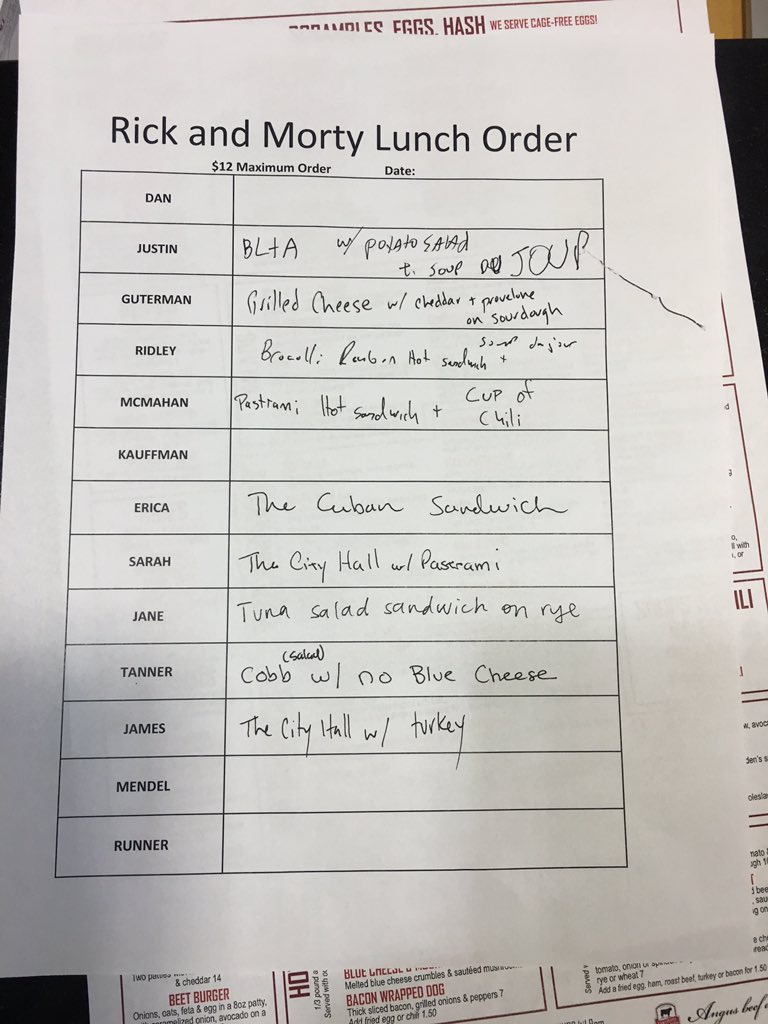 EGGS, HASH WE SERVE CAGE-FREE EGGS!
Rick and Morty Lunch Order
$12 Maximum Order Date:
DAN
JUSTIN BLTA w/ POTATO SALAD
t. SOUP JOUR
GUTERMAN Grilled Cheese w/ cheddar + provelone
on sourdough
RIDLEY Brocolli Reuben Hot sandwich + soup du jour
MCMAHAN Pastrami Hot sandwich + Cup of
Chili
KAUFFMAN
ERICA The Cuban Sandwich
SARAH The City Hall w/ Pastrami
JANE Tuna salad sandwich on rye
TANNER Cobb (salad) w/ no Blue Cheese
JAMES The City Hall w/ turkey
MENDEL
RUNNER
& cheddar 14
BEET BURGER
Onions, cats, feta & egg in a 8oz patty,
onion, avocado on a
HO
1/3 pound a
Served with
BLUE CHEESE &
Melted blue cheese crumbles & sautéed
BACON WRAPPED DOG
Thick sliced bacon, grilled onions & peppers 7
Add fried egg or chili 1.50
Served
tomato, onion or
rye or wheat 7
Add a fried egg, ham, roast beef, turkey or bacon for 1.50
Angus beef
ILI